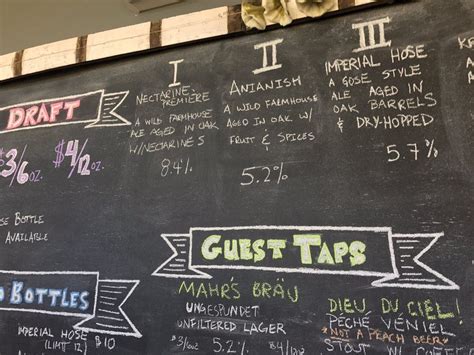 DRAFT
$3/6oz. $4/12oz.
SE BOTTLE
AVAILABLE
I
NECTARINE
PREMIERE
A WILD FARMHOUSE
ALE AGED IN OAK
W/NECTARINES
8.4%
II
ANIANISH
A WILD FARMHOUSE
AGED IN OAK W/
FRUIT & SPICES
5.2%
III
IMPERIAL HOSE
A GOSE STYLE
ALE AGED IN
OAK BARRELS
& DRY-HOPPED
5.7%
GUEST TAPS
MAHR'S BRÄU
UNGESPUNDET
UNFILTERED LAGER
$3/6oz 5.2%
DIEU DU CIEL!
PÉCHÉ VÉNIEL
*NOT A PEACH BEER*
STOUT
BOTTLES
IMPERIAL HOSE
(LIMIT 12) $10